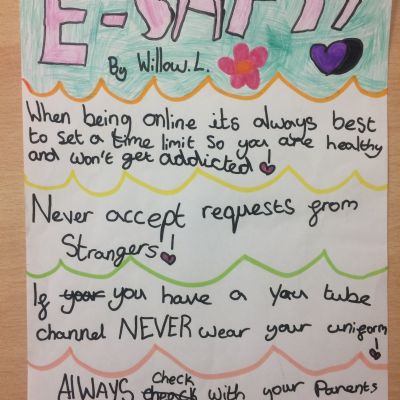 E-SAFTY
By Willow.L.
When being online its always best
to set a time limit so you are healthy
and won't get addicted!
Never accept requests from
Strangers!
If your you have a You tube
channel NEVER wear your uniform
!
ALWAYS check
check with your Parents